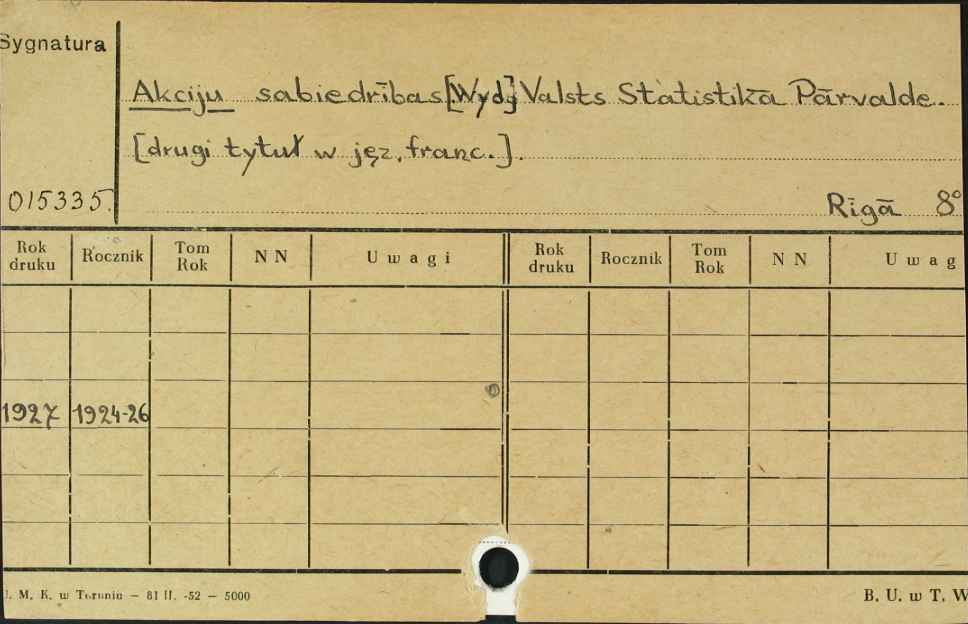 Sygnatura
Akciju sabiedrības [Wyd.] Valsts Statistikā Pārvalde.
[drugi tytuł w jęz. franc.].
015335.
Rīgā 8°
Rok druku Rocznik Tom Rok N N Uwagi Rok druku Rocznik Tom Rok N N Uwag
1927 1924-26
M. K. w Toruniu — 81 II. -52 — 5000
B. U. w T. W